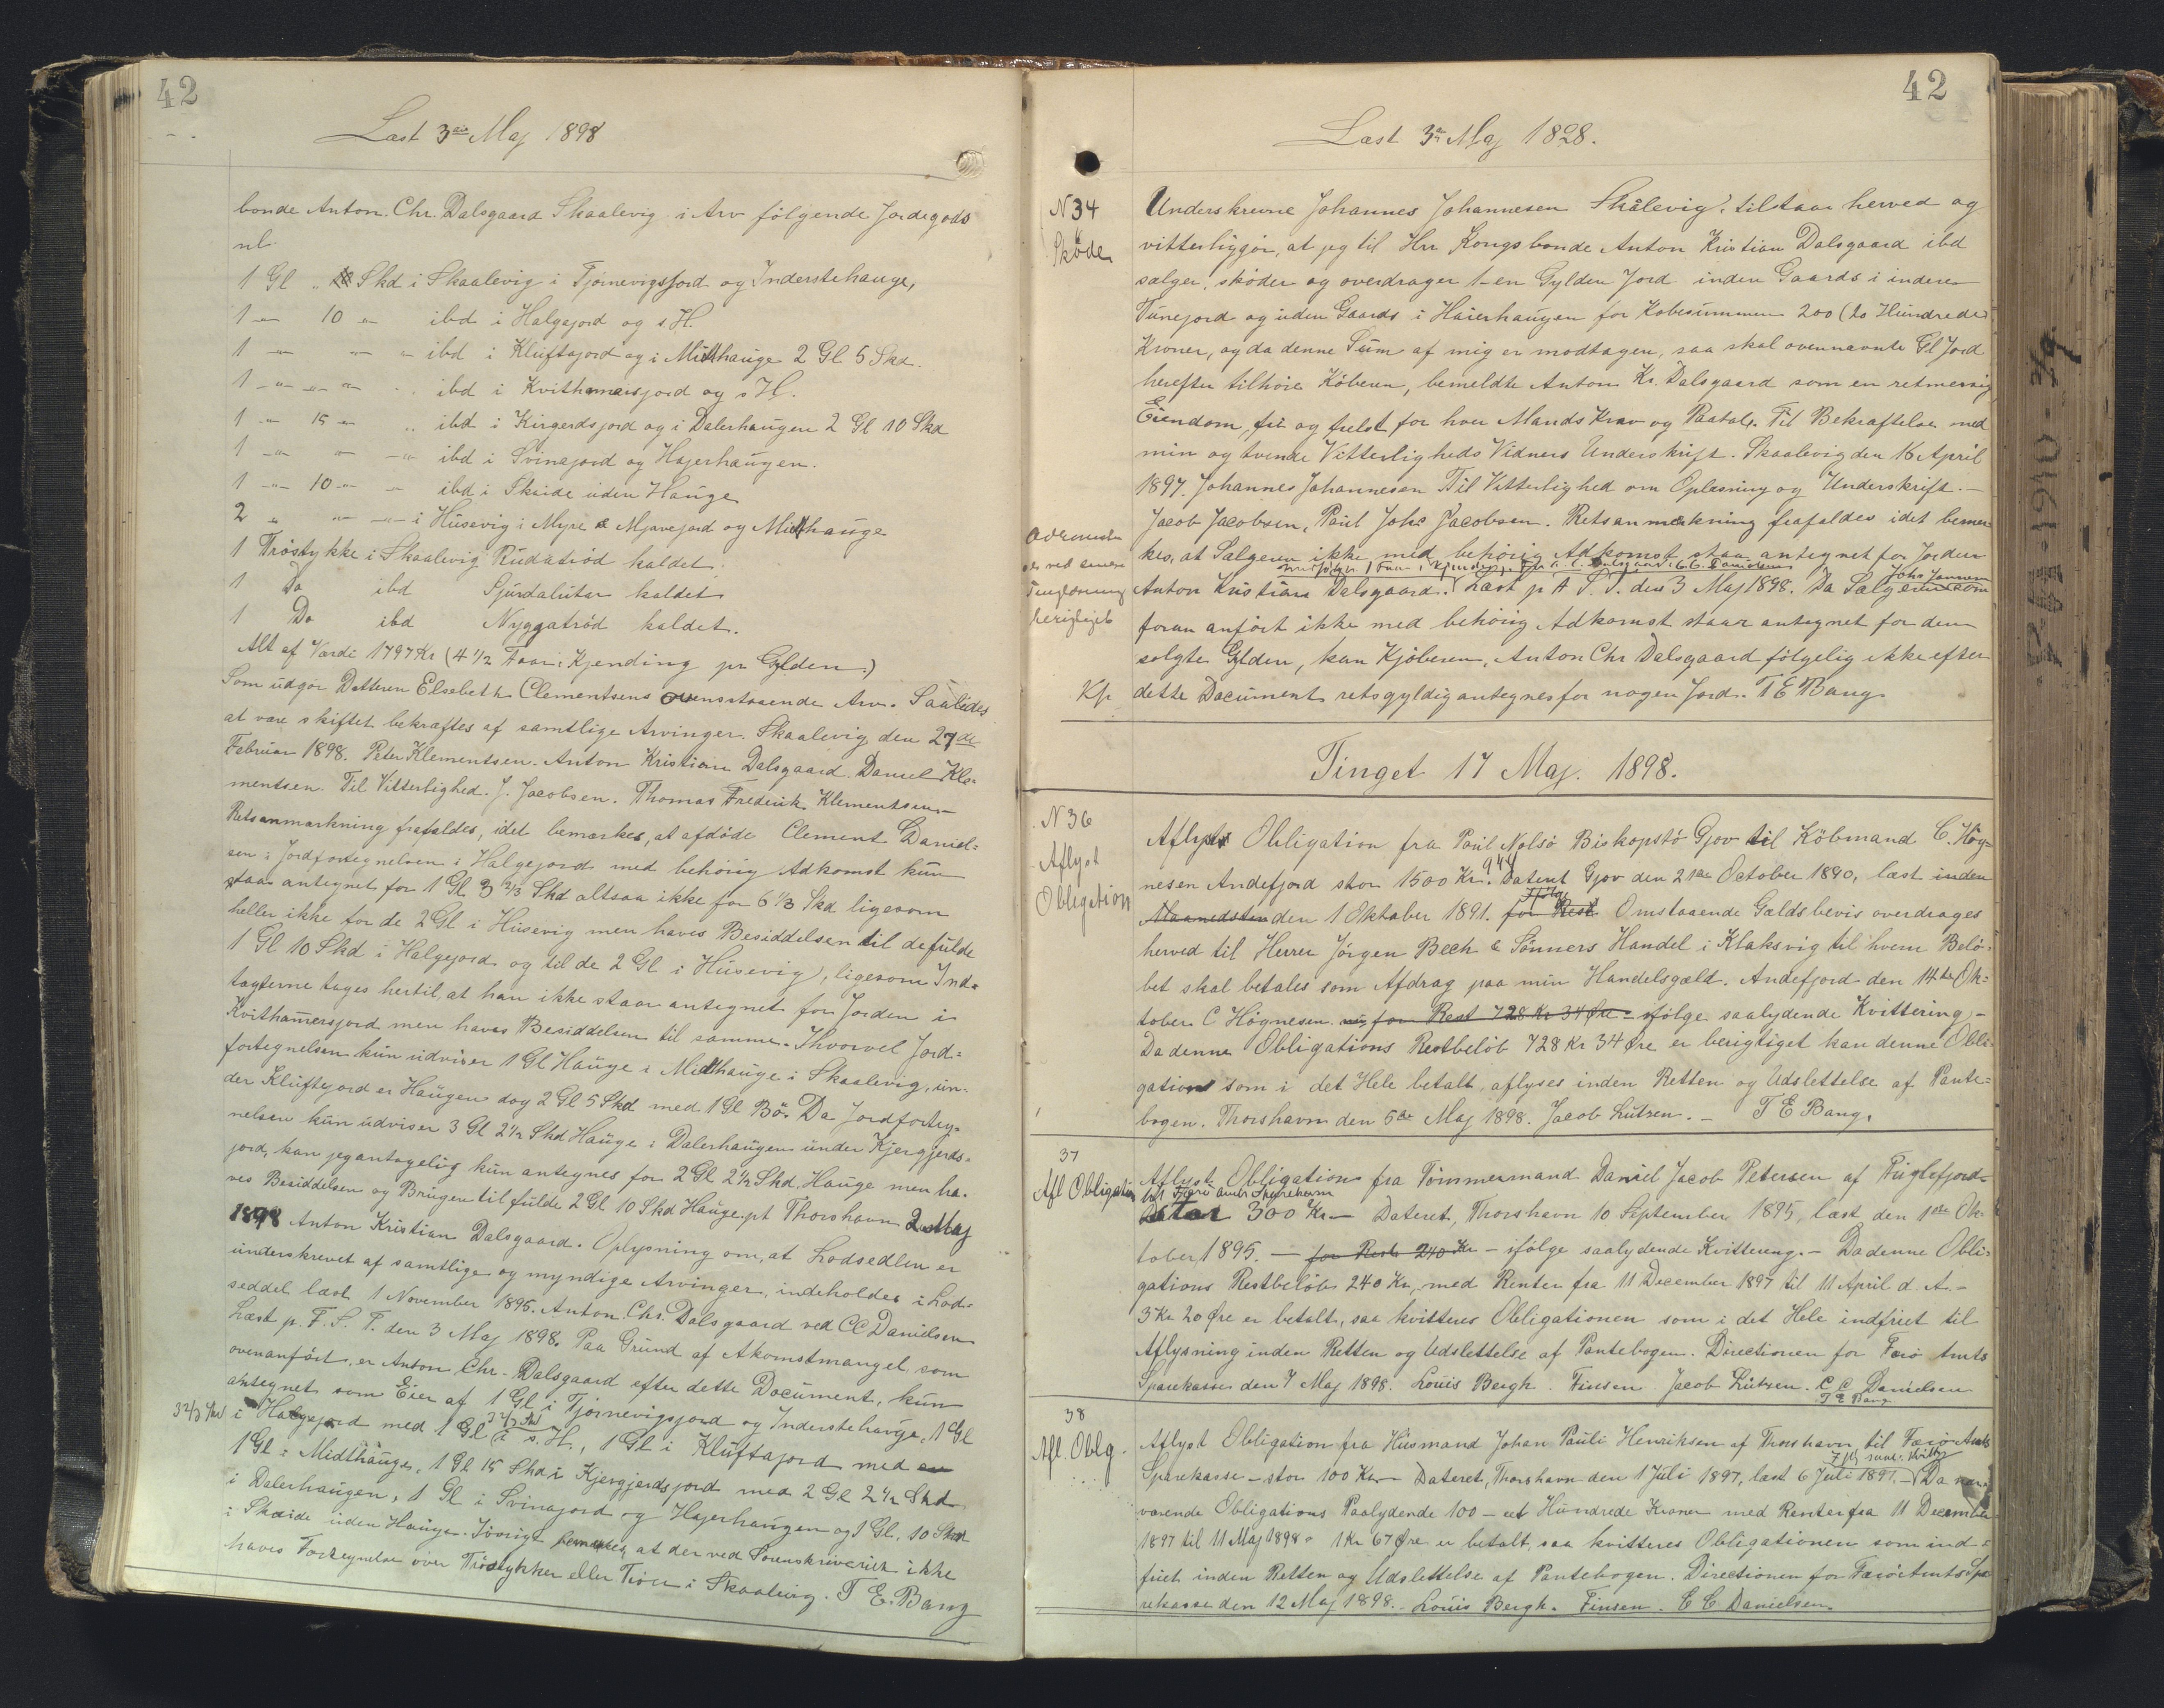 42
Læst 3die Maj 1898
bonde Anton. Chr. Dalsgaard Skaalevig i Arv følgende Jordegods
nl.
1 Gl " Skd i Skaalevig i Tjørnevigsjord og Inderstehauge,
1 -"- 10 -"- ibd i Halgejord og s. H.
1 -"- -"- -"- ibd i Kluftajord og i Midthauge 2 Gl 5 Skd.
1 -"- -"- -"- ibd i Kvithamersjord og s H.
1 -"- 15 -"- " ibd i Kirgerdsjord og i Dalerhaugen 2 Gl 10 Skd
1 -"- -"- -"- ibd i Svinajord og Hajerhaugen.
1 -"- 10 -"- - ibd i Skeide uden Hauge
2 " -"- -"- i Husevig i Myre & Mjavejord og Midthauge
1 Tröstykke i Skaalevig Rudatröd kaldet.
1 Do ibd Sjurdaluter kaldet
1 Do ibd Nyggatröd kaldet.
Alt af Værdi 1797 Kr (4 1/2 Faar i Kjending pr Gylden.)
Som udgør Datteren Elsebeth Clementsens ovenstaaende Arv. Saaledes
at være skiftet bekræftes af samtlige Arvinger. Skaalevig den 27de
Februar 1898. Peter Klementsen. Anton Kristian Dalsgaard. Daniel Kle-
mentsen. Til Vitterlighed. J. Jacobsen. Thomas Frederik Klementsen
Retsanmærkning frafaldes, idet bemærkes, at afdøde Clement Daniel-
sen i Jordfortegnelsen i Halgejord med behörig Adkomst kun
staar antegnet for 1 Gl 3 2/3 Skd altsaa ikke for 6 1/3 Skd ligesom
heller ikke for de 2 Gl i Husevig men haves Besiddelsen til de fulde
1 Gl 10 Skd i Halgejord og til de 2 Gl i Husevig), ligesom Ind-
tagterne tages hertil, at han ikke staar antegnet for Jorden i
Kvithamersjord men haves Besiddelsen til samme. Ihvorvel Jord-
fortegnelsen kun udviser 1 Gl Hauge i Midthauge i Skaalevig, un-
der Kluftejord er Haugen dog 2 Gl 5 Skd med 1 Gl Bö. Da Jordforteg-
nelsen kun udviser 3 Gl 2 1/2 Skd Hauge i Dalerhaugen under Kjergjerds-
jord, kan jeg antagelig kun antegnes for 2 Gl 2 1/2 Skd. Hauge men ha-
ves Besiddelsen og Brugen til fulde 2 Gl 10 Skd Hauge. pt Thorshavn 2 Maj
1898 Anton Kristian Dalsgaard. Oplysning om, at Lodsedlen er
underskrevet af samtlige og myndige Arvinger, indeholdes i Lod-
seddel læst 1 November 1895. Anton Chr. Dalsgaard ved C C Danielsen
Læst p. F. S. T. den 3 Maj 1898. Paa Grund af Akomstmangel som
ovenanført, er Anton Chr. Dalsgaard efter dette Document, kun
antegnet som Eier af 1 Gl i Tjørnevigsjord og Inderstehauge, 1 Gl
3 2/3 Skd i Halgejord med 1 Gl 3 2/3 Skd i s. H., 1 Gl i Kluftajord med
1 Gl i Midthauge, 1 Gl 15 Skd i Kjergjerdsjord med 2 Gl 2 1/2 Skd
i Dalerhaugen, 1 Gl i Svinajord og Hajerhaugen og 1 Gl. 10 Skd
i Skeide uden Hauge. Iøvrigt bemærkes, at der ved Sorenskriveriet ikke
haves Fortegnelse over Tröstykker eller Tröer i Skaalevig. T E. Bang
42
Læst 3die Maj 1898.
N 34
Skøde
Underskrevne Johannes Johannesen Skålevig tilstaar herved og
vitterliggör, at jeg til Hrr Kongsbonde Anton Kristian Dalsgaard ibd
sælger, skøder og overdrager 1 - en Gylden Jord inden Gaards i indere
Tunejord og uden Gaards i Haierhaugen for Købesummen 200 (to Hundrede)
Kroner, og da denne Sum af mig er modtagen, saa skal ovennævnte Gl Jord
herefter tilhøre Köberen, bemeldte Anton Kr. Dalsgaard som en retmæssig
Eiendom, fri og frelst for hver Mands Krav og Paatale. Til Bekræftelse med
min og tvende Vitterligheds Vidners Underskrift. Skaalevig den 16 April
1897. Johannes Johannesen Til Vitterlighed om Oplæsning og Underskrift. -
Jacob Jacobsen, Poul Johs Jacobsen. Retsanmærkning frafaldes idet bemær-
kes, at Sælgeren ikke med behörig Adkomst staar antegnet for Jorden
Anton Kristian Dalsgaard. Læst p A. S. T. den 3 Maj 1898. Da Sælgeren som
foran anfört ikke med behörig Adkomst staar antegnet for den
solgte Gylden, kan Kjöberen, Anton Chr Dalsgaard følgelig ikke efter
Kp. dette Document retsgyldig antegnes for nogen Jord. T E Bang
Tinget 17 Maj. 1898.
N 36
Aflyst
Obligation
Aflyst Obligation fra Poul Nolsø Biskopstø Gjov til Købmand C. Høg-
nesen Andefjord stor 1500 Kr. Datert Gjov den 21de October 1890, læst inden
Maanedsten den 1 Oktober 1891. for Rest Omstaaende Gældsbevis overdrages
herved til Herrer Jørgen Bech & Sønners Handel i Klaksvig til hvem Belø-
bet skal betales som Afdrag paa min Handelsgæld. Andefjord den 14de Ok-
tober C Høgnesen. for Rest 728 Kr 34 Øre - ifölge saalydende Kvittering, -
Da denne Obligations Restbeløb 728 Kr 34 Øre er berigtiget kan denne Obli-
gation som i det Hele betalt aflyses inden Retten og Udslettelse af Pante-
bogen. Thorshavn den 5de Maj 1898. Jacob Lutzen. - T E Bang.
37
Afl Obligation
Aflyst Obligation fra Tömmermand Daniel Jacob Petersen af Fuglefjord
til Færø Amts Sparekasse
stor 300 Kr - Dateret, Thorshavn 10 September 1895, læst den 1ste Ok-
tober 1895. - for Rest 240 Kr - ifölge saalydende Kvittering. - Da denne Obli-
gations Restbeløb 240 Kr, med Renter fra 11 December 1897 til 11 April d. A. -
3 Kr 20 Øre er betalt, saa kvitteres Obligationen som i det Hele indfriet til
Aflysning inden Retten og Udslettelse af Pantebogen. Directionen for Færø Amts
Sparekasse den 7 Maj 1898. Louis Bergh. Finsen. Jacob Lützen. C C Danielsen
T E Bang
38
Afl. Oblg.
Aflyst Obligation fra Husmand Johan Pauli Henriksen af Thorshavn til Færø Amts
Sparekasse - stor 100 Kr - Dateret, Thorshavn den 1 Juli 1897, læst 6 Juli 1897. - Da nær-
værende Obligations Paalydende 100 - eet Hundrede Kroner med Renter fra 11 December
1897 til 11 Maj 1898 - 1 Kr 67 Øre er betalt, saa kvitteres Obligationen som ind-
friet inden Retten og Udslettelse af Pantebogen. Directionen for Færø Amts Spa-
rekasse den 12 Maj 1898. - Louis Bergh. Finsen. C C Danielsen.